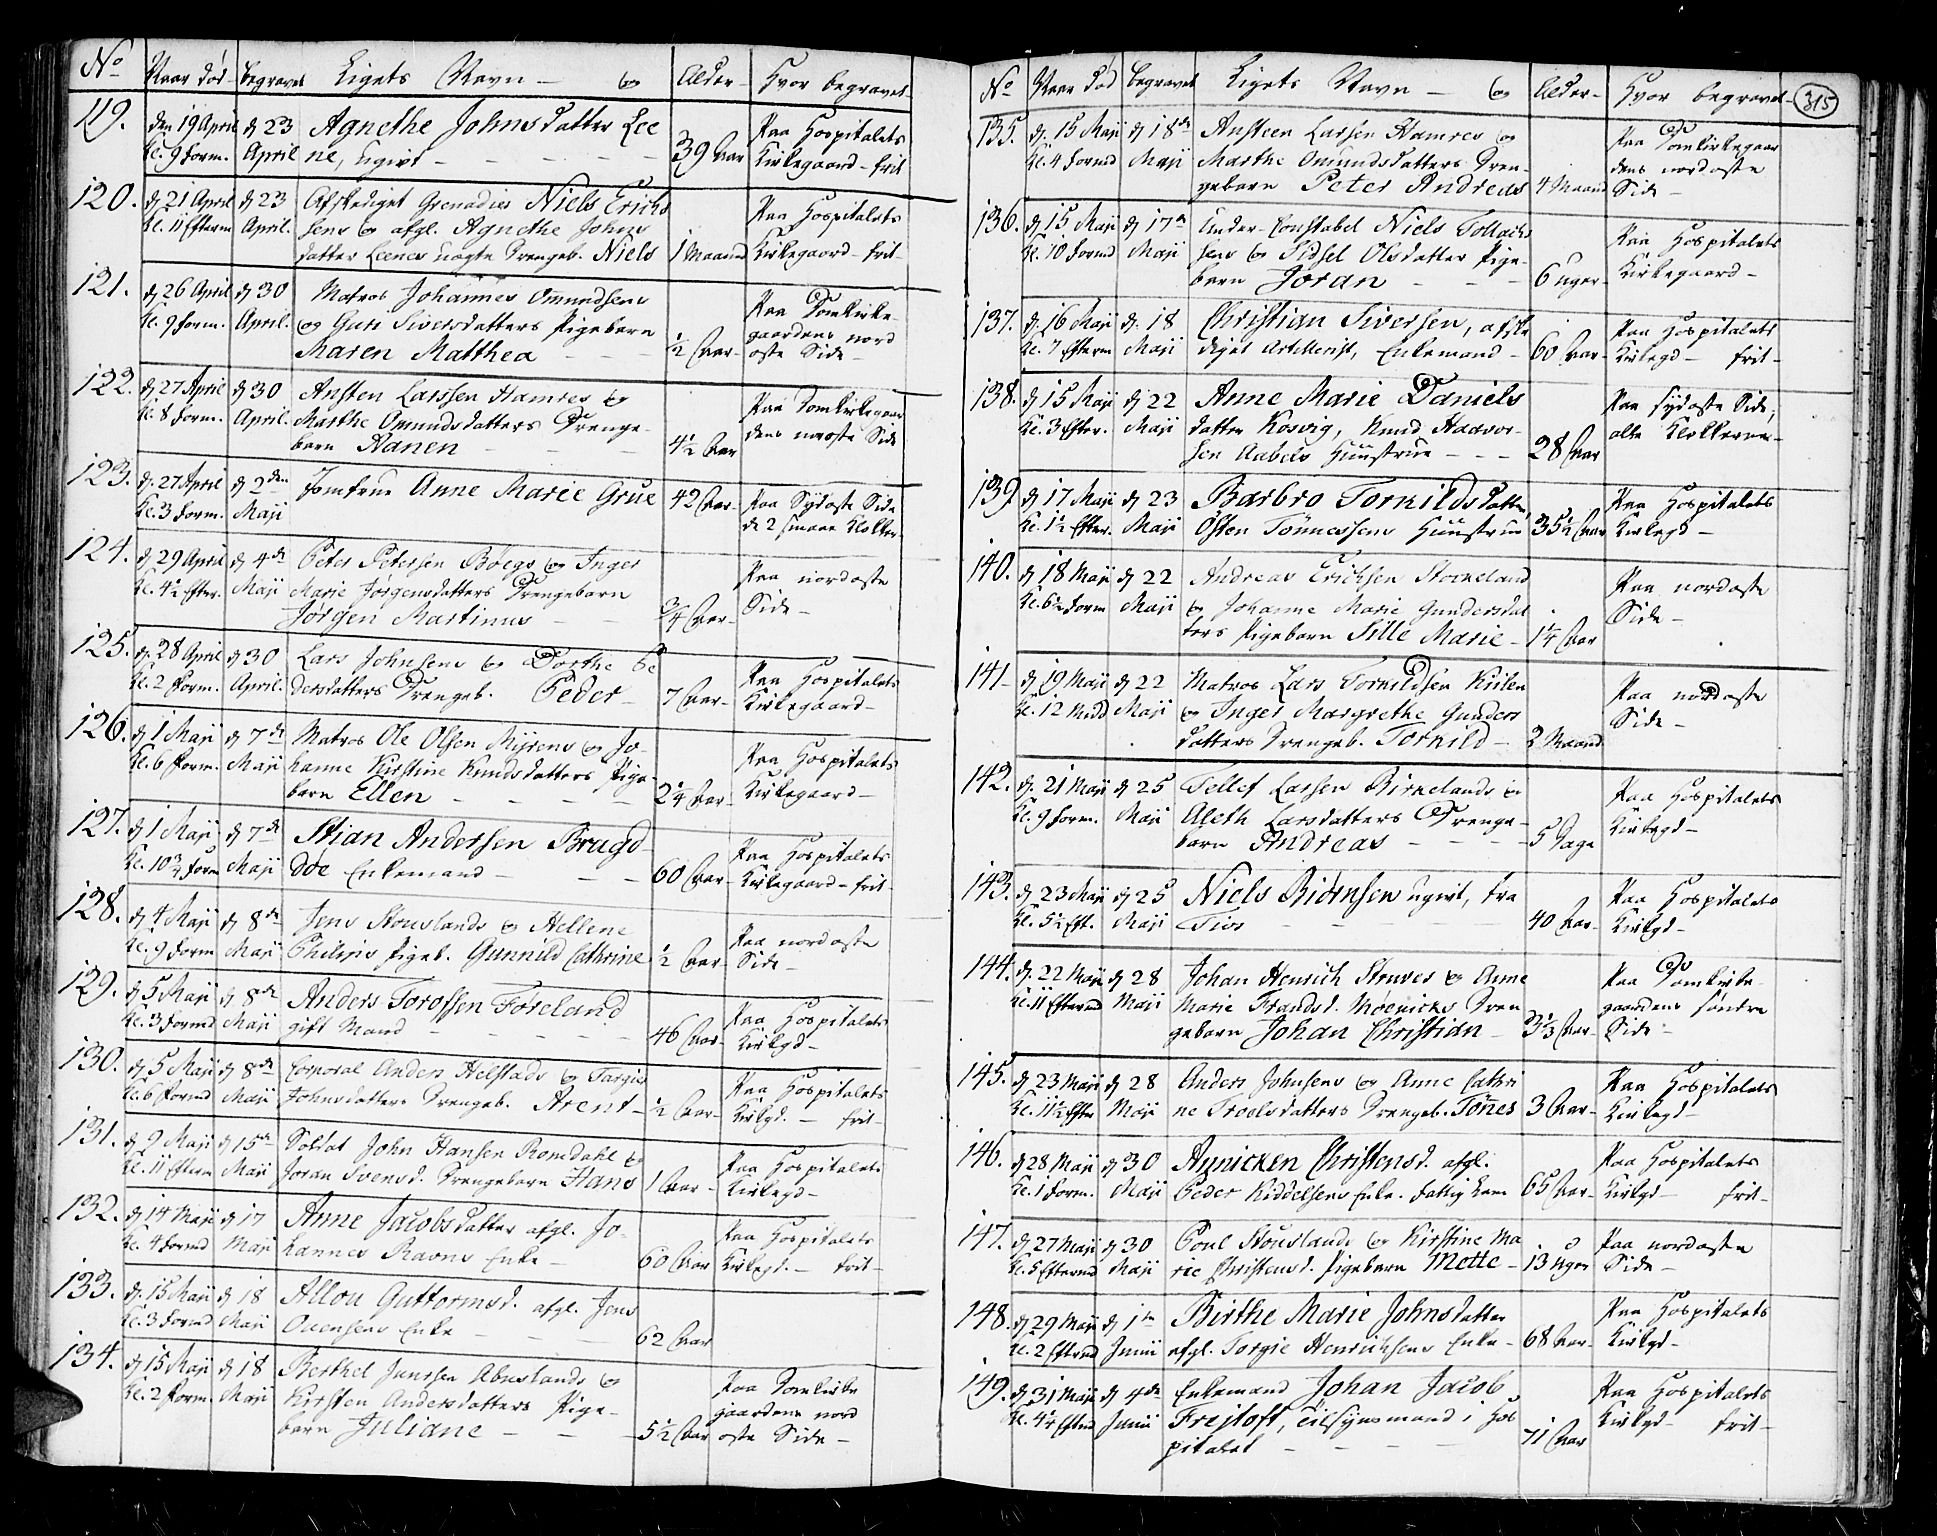 No Naar død begravet Ligets Navn og Alder Hvor begravet
119. den 19 April d 23 Agnethe Johnsdatter Lee Paa Hospitalets
Kl. 9 Form. April ne, Ugivt 39 Aar Kirkegaard frit
120. d 21 April d 23 Afskediget Grenadier Niels Erich Paa Hospitalets
Kl. 11 Efterm April. sens og afgl. Agnethe Johns
datter Leenes uægte Drengeb. Niels 1 Maaned Kirkegaard frit
121. d 26 April d 30 Matros Johannes Omundsens Paa Domkirke
Kl. 9 Form. April. og Guri Siversdatters Pigebarn gaardens nord
Maren Matthea ½ Aar oste Side
122. d 27 April d 30 Ansten Larssen Hamres og Paa Domkirkegaar
Kl. 8 Form. April. Marthe Omundsdatters Drenge dens Side
barn Kanen 4½ Aar
123. d. 27 April d 2den Jomfrue Anne Marie Grue 42 Aar Paa Sydoste Side
Kl. 3 Form. Maji de 2 smaae Klokker
124. d 29 April d 4de Peter Petersen Bøegs og Inger Paa nordoste
Kl. 4½ Efter. Maji Marie Jørgensdatters Drengebarn Side
Jørgen Martinus ¾ Aar
125. d. 28 April d 30 Lars Johnsens og Dorthe Pe Paa Hospitalets
Kl. 2 Form. April. dersdatters Drengeb. Peder 7 Aar Kirkegaard
126. d 1 Maji d 7de Matros Ole Olsen Myrens og Jo- Paa Hospitalets
Kl. 6 Form. Maji hanne Kirstine Knudsdatters Pige
barn Ellen 2¼ Aar Kirkegaard
127. d 1 Maji d 7de Stian Andersen Brugd Paa Hospitalets
Kl. 10¾ Form Maji døe Enkemand 60 Aar Kirkegaard frit
128. d 4 Maji d 8de Jens Stouslands og Hellene Paa nordoste
Kl. 9 Form Maji Philips Pigeb. Gunnild Cathrine ½ Aar Side
129. d 5 Maji d 8de Anders Torossen Foreland Paa Hospitalets
Kl. 3 Formd Maji gift Mand 46 Aar Kirkgd
130. d 5 Maji d 8de Corporal Anders Helstads og Targier Paa Hospitalets
Kl. 6 Formd Maji Johnsdatters Drengeb. Arent ½ Aar Kirkgd. frit
131. d 9 Maji d 15de Soldat John Hansen Romdahl og Paa Hospitalets
Kl. 11 Efterm Maji Joran Svensd. Drengebarn Hans 1 Aar Kirkegd
132. d 14 Maji d 17 Anne Jacobsdatter afgl. Jo- Paa Hospitalets
Kl. 4 Formd Maji hannes Ravns Enke 60 Aar Kirkegd. frit
133. d. 15 Maji d 18 Allou Guttormsd. afgl. Jens
Kl. 3 Formd Maji Ovensens Enke 62 Aar
134. d 15 Maji d 18 Berthel Janssen Abuslands og Paa Domkirke
Kl. 2 Form. Maji Kirsten Andersdatters Pige- gaardens nord
barn Juliane 5½ Aar oste Side
No Naar død begravet Ligets Navn og Alder Hvor begravet 315
135. d. 15 Maji d 18de Ansteen Larsen Hamres og Paa Domkirkegaar
Kl. 4 Formd Maji Marthe Omundsdatters Dren- dens nordoste
gebarn Peter Andreas 4 Maaned Side
136. d 15 Maji d 17de Under-Constabel Niels Tollachs Paa Hospitalets
Kl. 10 Formd Maji sens og Sidsel Olsdatter Pige- Kirkegaard
barn Joran 6 uger
137. d. 16 Maji d. 18 Christian Siversen, afske Paa Hospitalets
Kl. 7 Efterm Maji diget Artillerist, Enkemand 60 Aar Kirkegd frit
138. d 15 Maji d 22 Anne Marie Daniels Paa sydoste Side,
Kl. 3 Efter. Maji datter Kosvig, Knud Haavor- alle Klokkerne
sen Aabels Huustrue 28 Aar
139. d 17 Maji d 23 Barbro Torkildsdatter, Paa Hospitalets
Kl. 1½ Efter. Maji Østen Tønnessens Huustrue 35½ Aar Kirkegd
140. d 18 Maji d 22 Andreas Erichsen Stockeland Paa nordoste
Kl. 6½ Form Maji og Johanne Marie Gundersdat Side
ters Pigebarn Sille Marie 1¼ Aar
141 d 19 Maji d 22 Matros Lars Torkildsen Kiilen Paa nordoste
Kl. 12 Midd Maji og Inger Margrethe Gunders Side
datters Drengeb. Torkild 2 Maaned
142. d. 21 Maji d 25 Tellef Larsen Birkelands og Paa Hospitalets
Kl. 9 Form. Maji Aleth Larsdatters Drenge- Kirkegd
barn Andreas 5 Dage
143. d 23 Maji d 25 Niels Biørnsen ugivt, fra Paa Hospitalets
Kl. 5½ Eft. Maji 40 Aar Kirkgd
144. d. 22 Maji d 28 Johan Henrich Struves og Anne Paa Domkirke-
Kl. 11 Eftermd Maji Marie Frandsd. Møenichs Dren gaardens søndre
gebarn Johan Christian 3⅓ Aar Side
145. d 23 Maji d 28 Anders Johnsens og Anne Cathri Paa Hospitalets
Kl. 11½ Efter Maji ne Troelsdatters Drengeb. Tønes 3 Aar Kirkegd
146. d 28 Maji d 30 Annicken Christensd. afgl. Paa Hospitalets
Kl. 1 Form. Maji Peder Kiddelsens Enke. fattig Lem 65 Aar Kirkgd frit
147. d 27 Maji d 30 Poul Stouslands og Kirstine Ma Paa nordoste
Kl. 5 Eftermd Maji rie Christensd. Pigebarn Mette 13 Uger Side
148. d 29 Maji d 1te Birthe Marie Johnsdatter Paa Hospitalets
Kl. 2 Eftermd Junii afgl. Torgie Henrichsens Enke 68 Aar Kirkgd
149. d. 31 Maji d 4de Enkemand Johan Jacob Paa Hospitalets
Kl. 4¼ Eftmd Junii Frejtoft, Tilsynsmand i Hos Kirkgd frit
pitalet 71 Aar